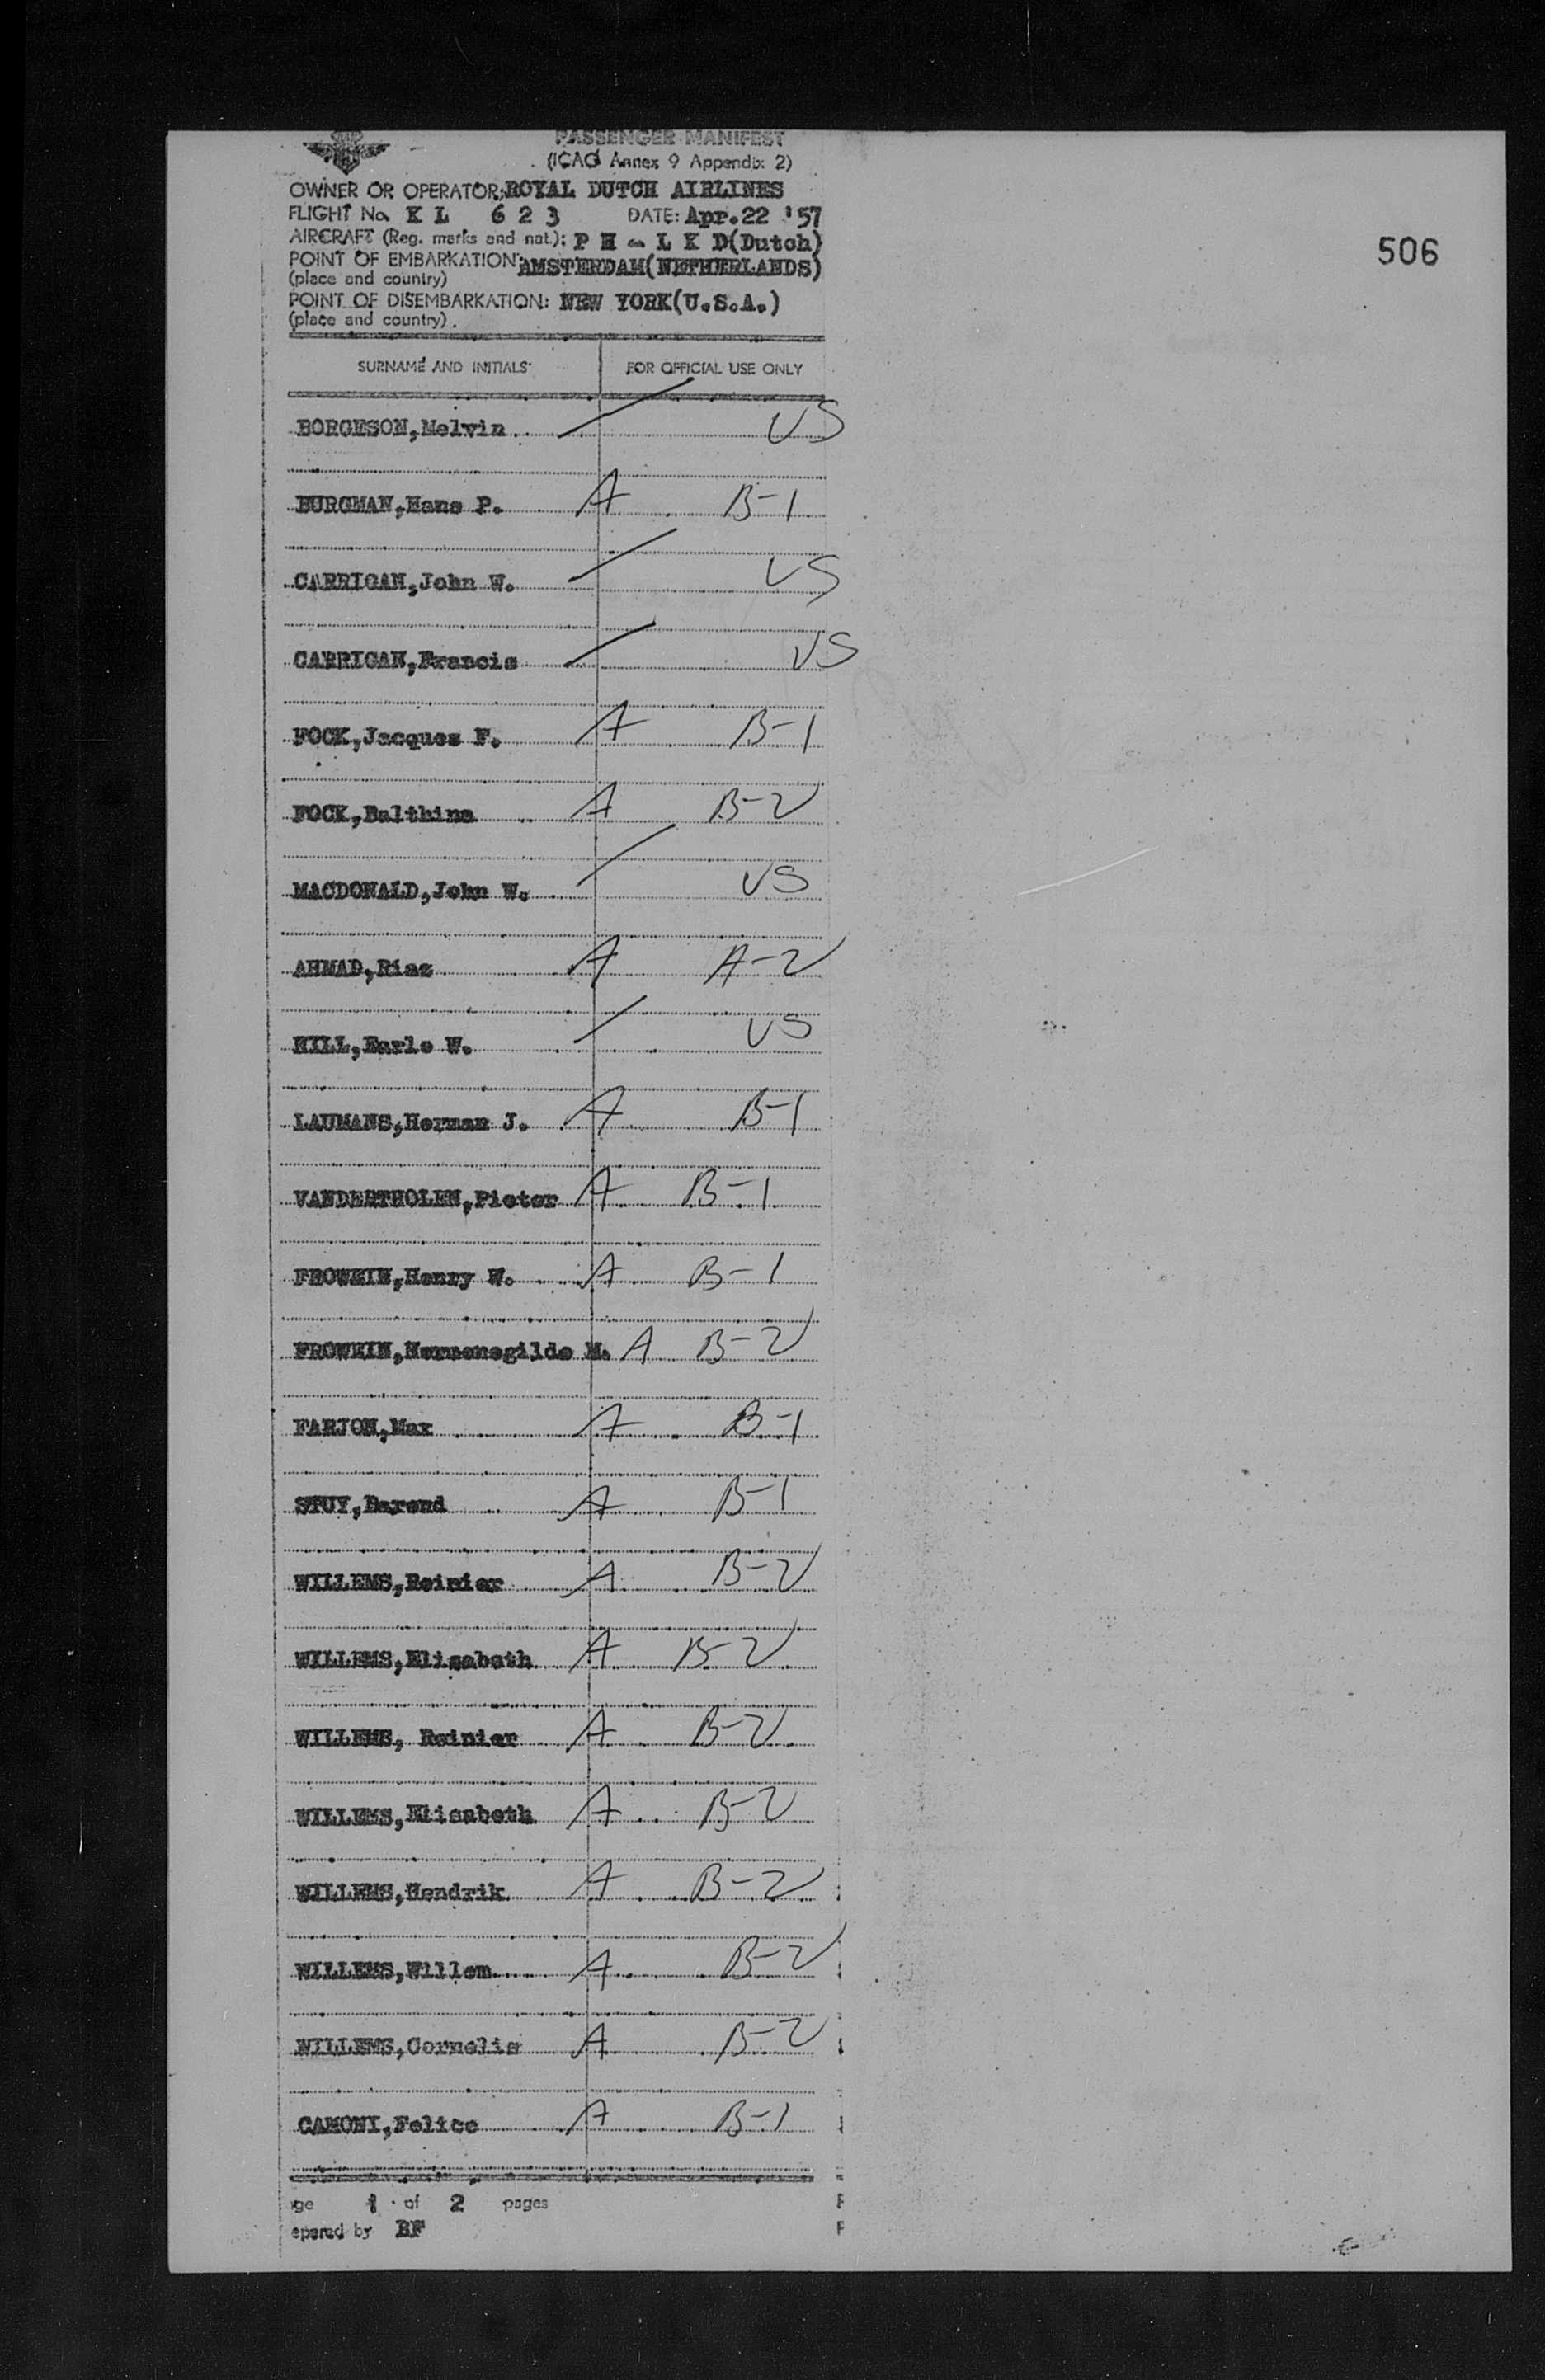 PASSENGER MANIFEST
(ICAO Annex 9 Appendix 2)
OWNER OR OPERATOR: ROYAL DUTCH AIRLINES
FLIGHT No. K L 6 2 3 DATE: Apr. 22 '57
AIRCRAFT (Reg. marks and nat.): P H - L K D(Dutch)
506
POINT OF EMBARKATION: AMSTERDAM(NETHERLANDS)
(place and country)
POINT OF DISEMBARKATION: NEW YORK(U.S.A.)
(place and country)
SURNAME AND INITIALS FOR OFFICIAL USE ONLY
BORGESON,Melvin US
BURGMAN,Hans P. A B-1
CARRIGAN,John W. US
CARRIGAN,Francis US
FOCK,Jacques F. A B-1
FOCK,Balthina A B-2
MACDONALD,John W. US
AHMAD,Riaz A A-2
HILL,Earle W. US
LAUMANS,Herman J. A B-1
VANDERTHOLEN,Pieter A B-1
FROWEIN,Henry W. A B-1
FROWEIN,Hermenegilde M. A B-2
FARJON,Max A B-1
STUY,Barend A B-1
WILLEMS,Reinier A B-2
WILLEMS,Elisabeth A B-2
WILLEMS, Reinier A B-2
WILLEMS,Elisabeth A B-2
WILLEMS,Hendrik A B-2
WILLEMS,Willem A B-2
WILLEMS,Cornelis A B-2
CAMONI,Felice A B-1
ge 1 of 2 pages
epared by BF